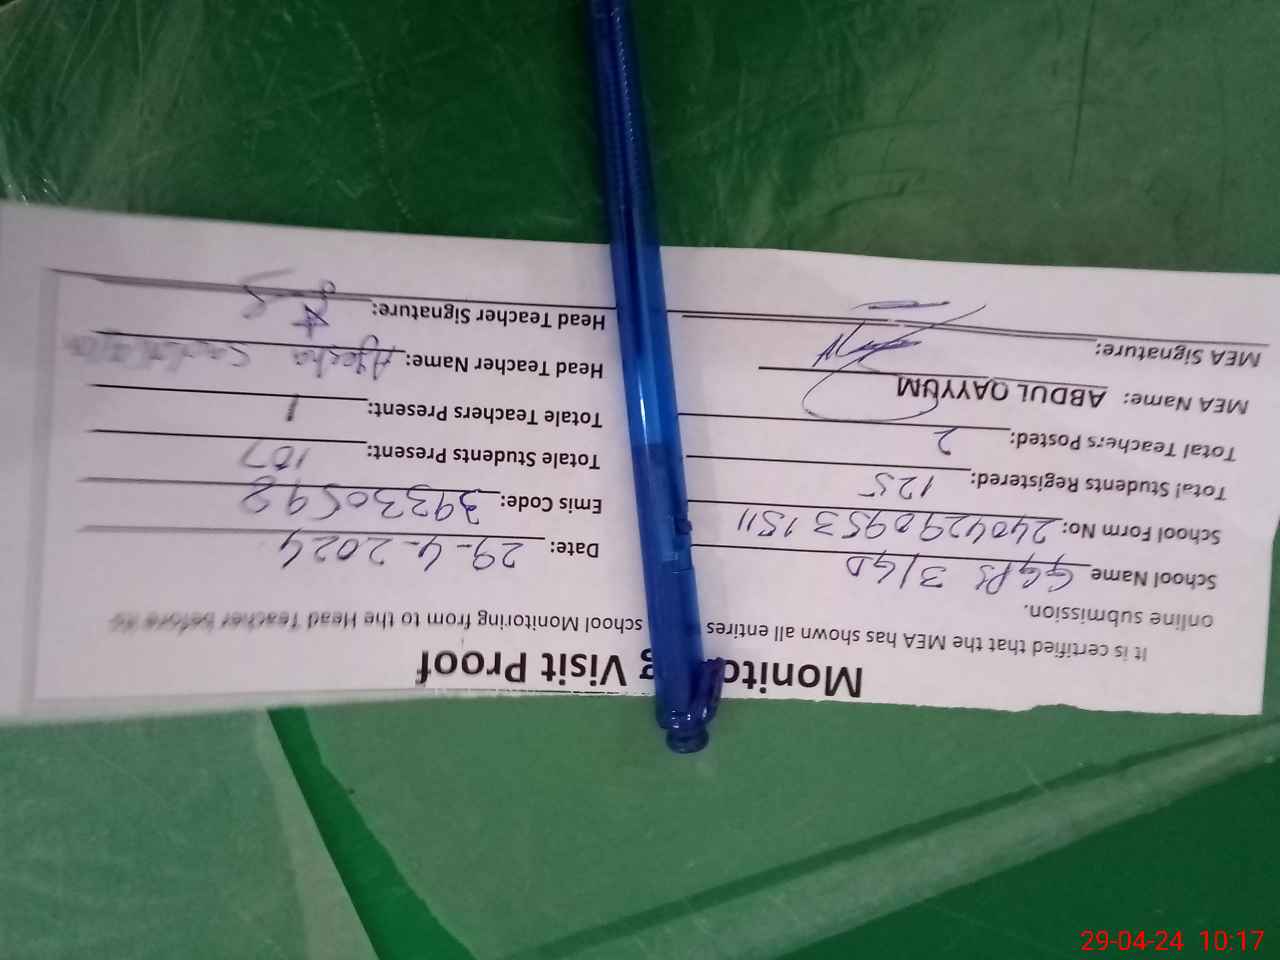 Monito g Visit Proof
It is certified that the MEA has shown all entires school Monitoring from to the Head Teacher before its
online submission.
School Name GGPS 3/GD
Date: 29-4-2024
School Form No: 24042909531511
Emis Code: 39330598
Total Students Registered: 125
Totale Students Present: 107
Total Teachers Posted: 2
Totale Teachers Present: 1
MEA Name: ABDUL QAYYUM
Head Teacher Name: Ayesha
MEA Signature:
Head Teacher Signature:
29-04-24 10:17